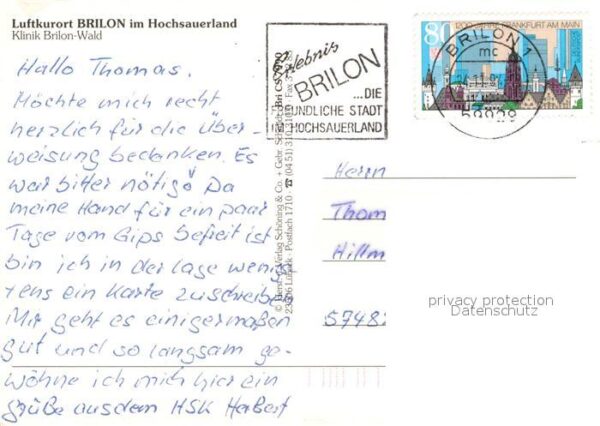 Luftkurort BRILON im Hochsauerland
Klinik Brilon-Wald
Hallo Thomas.
Möchte mich recht
herzlich für die Über-
weisung bedanken. Es
war bitter nötig Da
meine Hand für ein paar
Tage vom Gips befreit ist
bin ich in der Lage wenigs
tens ein Karte zuschreiben
Mir geht es einigermaßen
gut und so langsam ge-
wöhne ich mich hier ein
Grüße aus dem HSK Herbert
Erlebnis
BRILON
...DIE
UNDLICHE STADT
HOCHSAUERLAND
80
1200 JAHRE FRANKFURT AM MAIN
BRILON 1
mc
59929
Verlag Schöning & Co. + Gebr. Schmidt
Lübeck · Postfach 1710
Herrn
Thom
Hillm
5748
privacy protection
Datenschutz